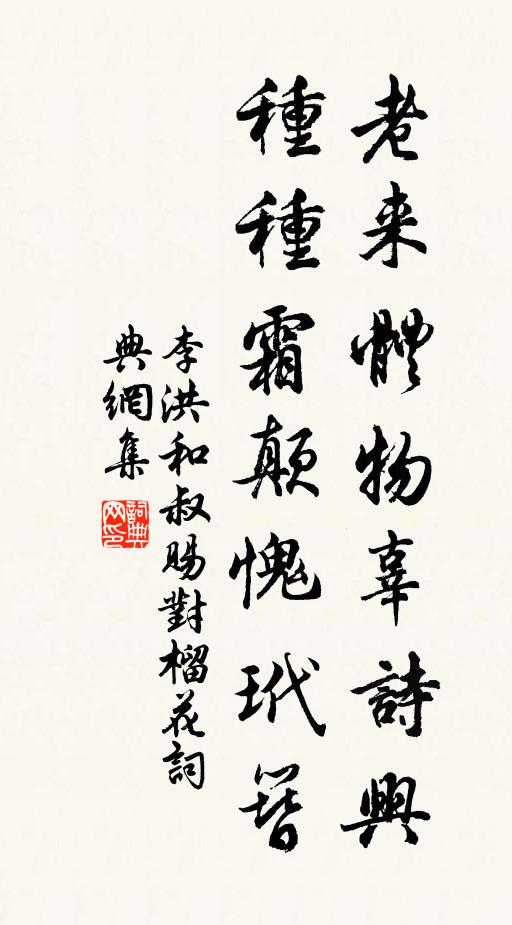 老来體物辜詩興
種種霜顛愧玳簪
李洪和叔賜對榴花詞
典網集
詞典網印